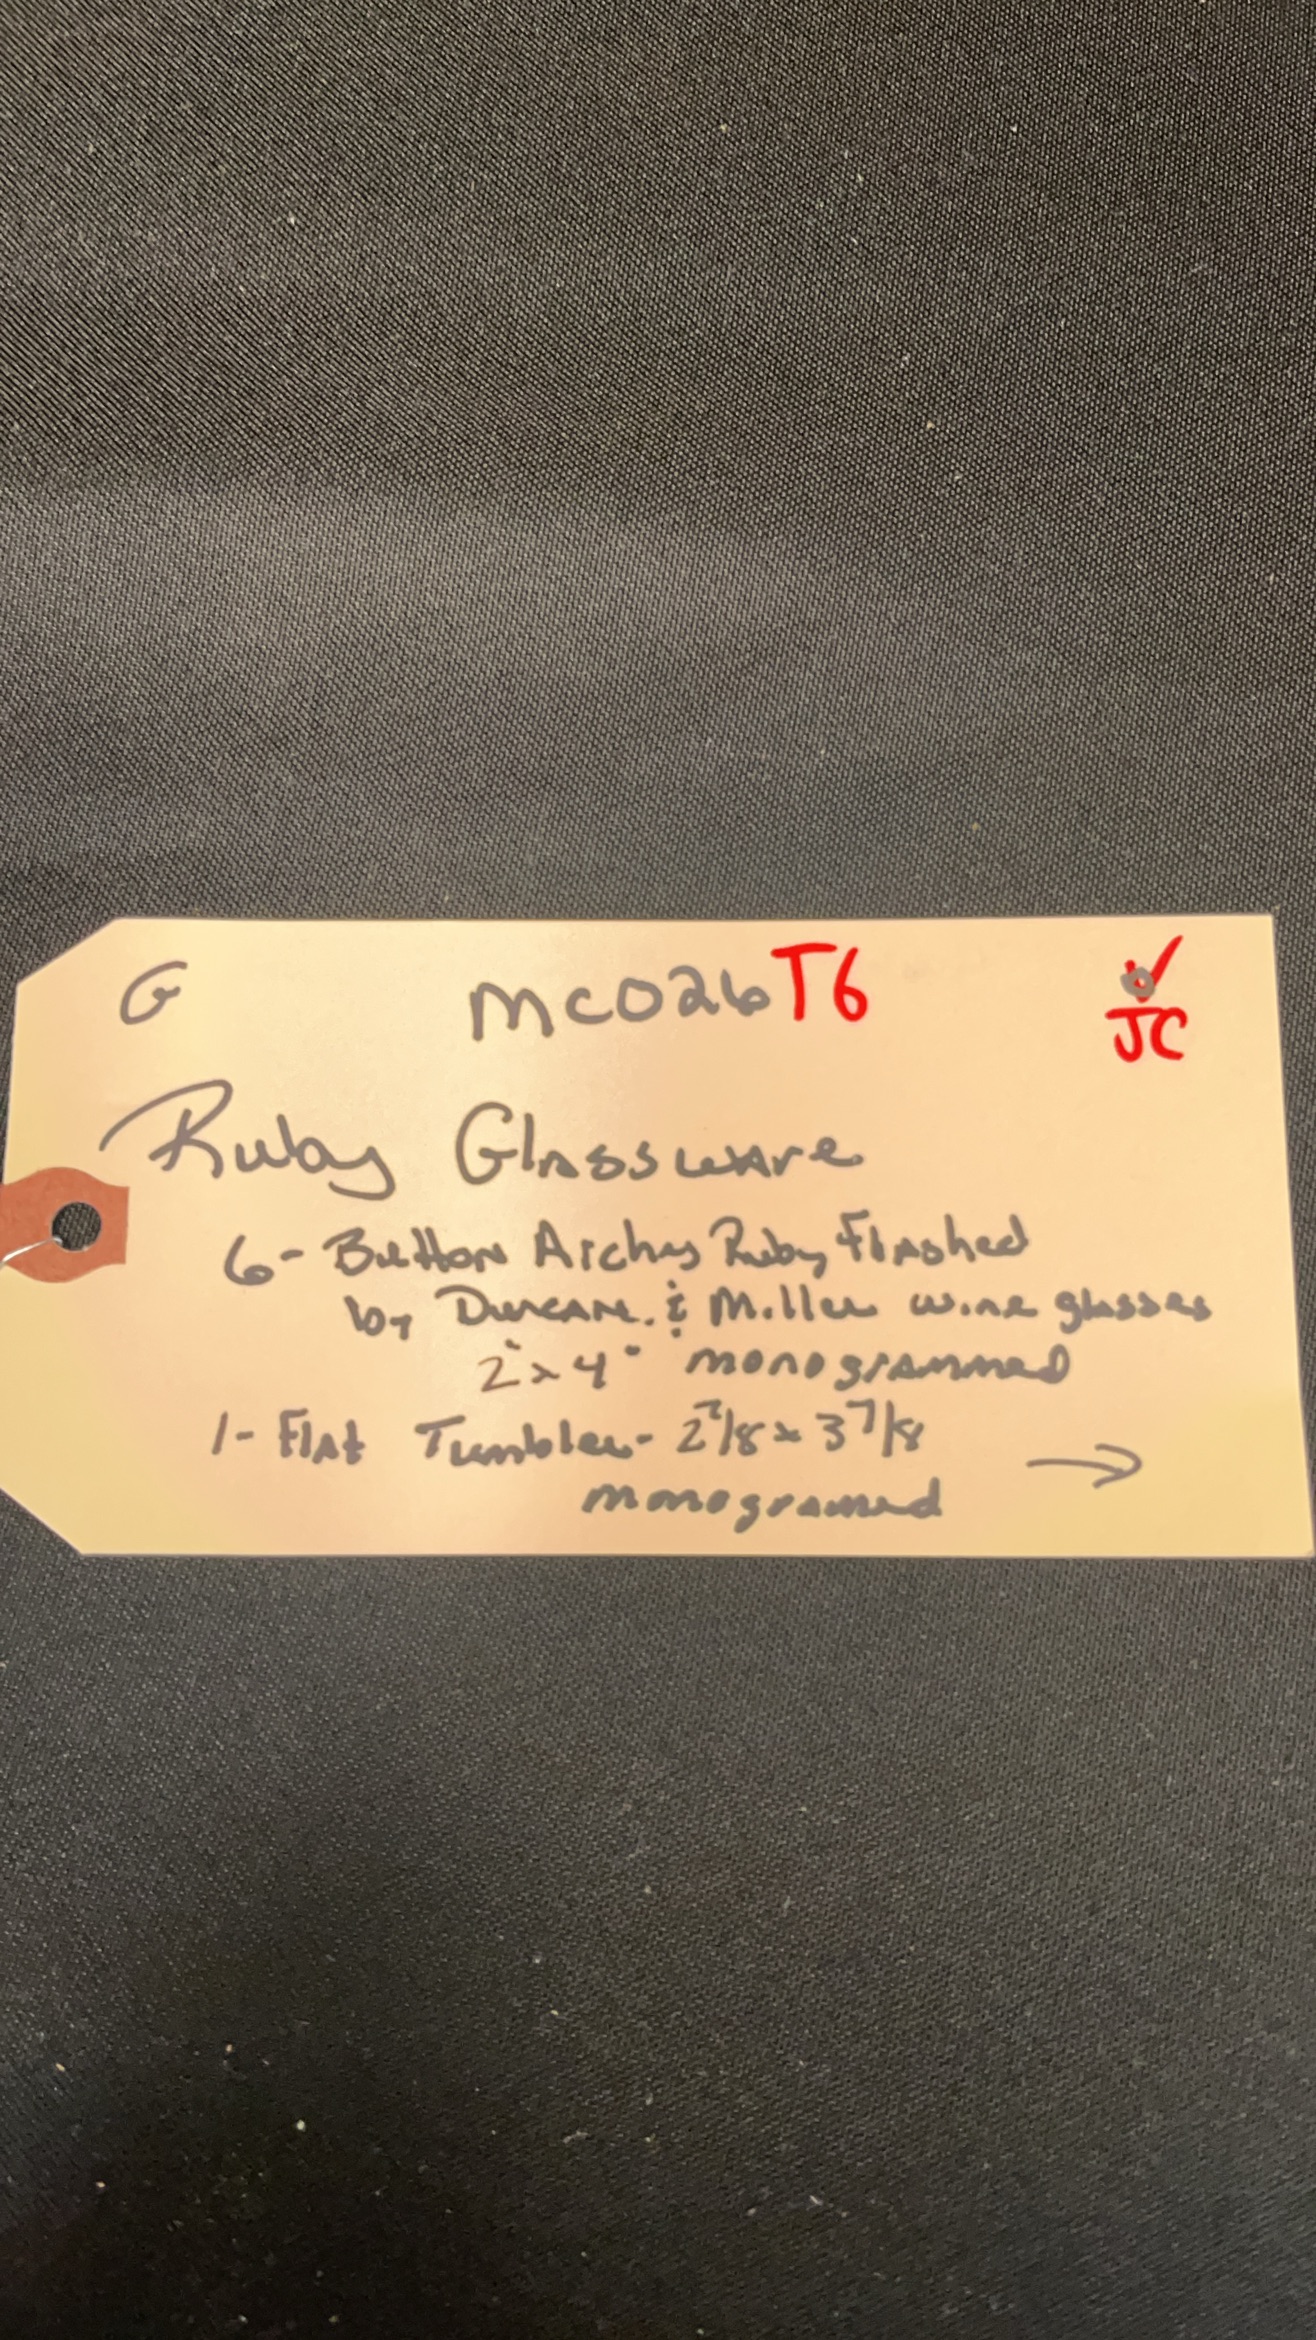 G MC026T6 ✓
JC
Ruby Glassware
6- Button Arches Ruby Flashed
by Duncan & Miller wine glasses
2"x4" monogrammed
1- Flat Tumbler- 2 7/8 x 3 7/8 →
monogramed